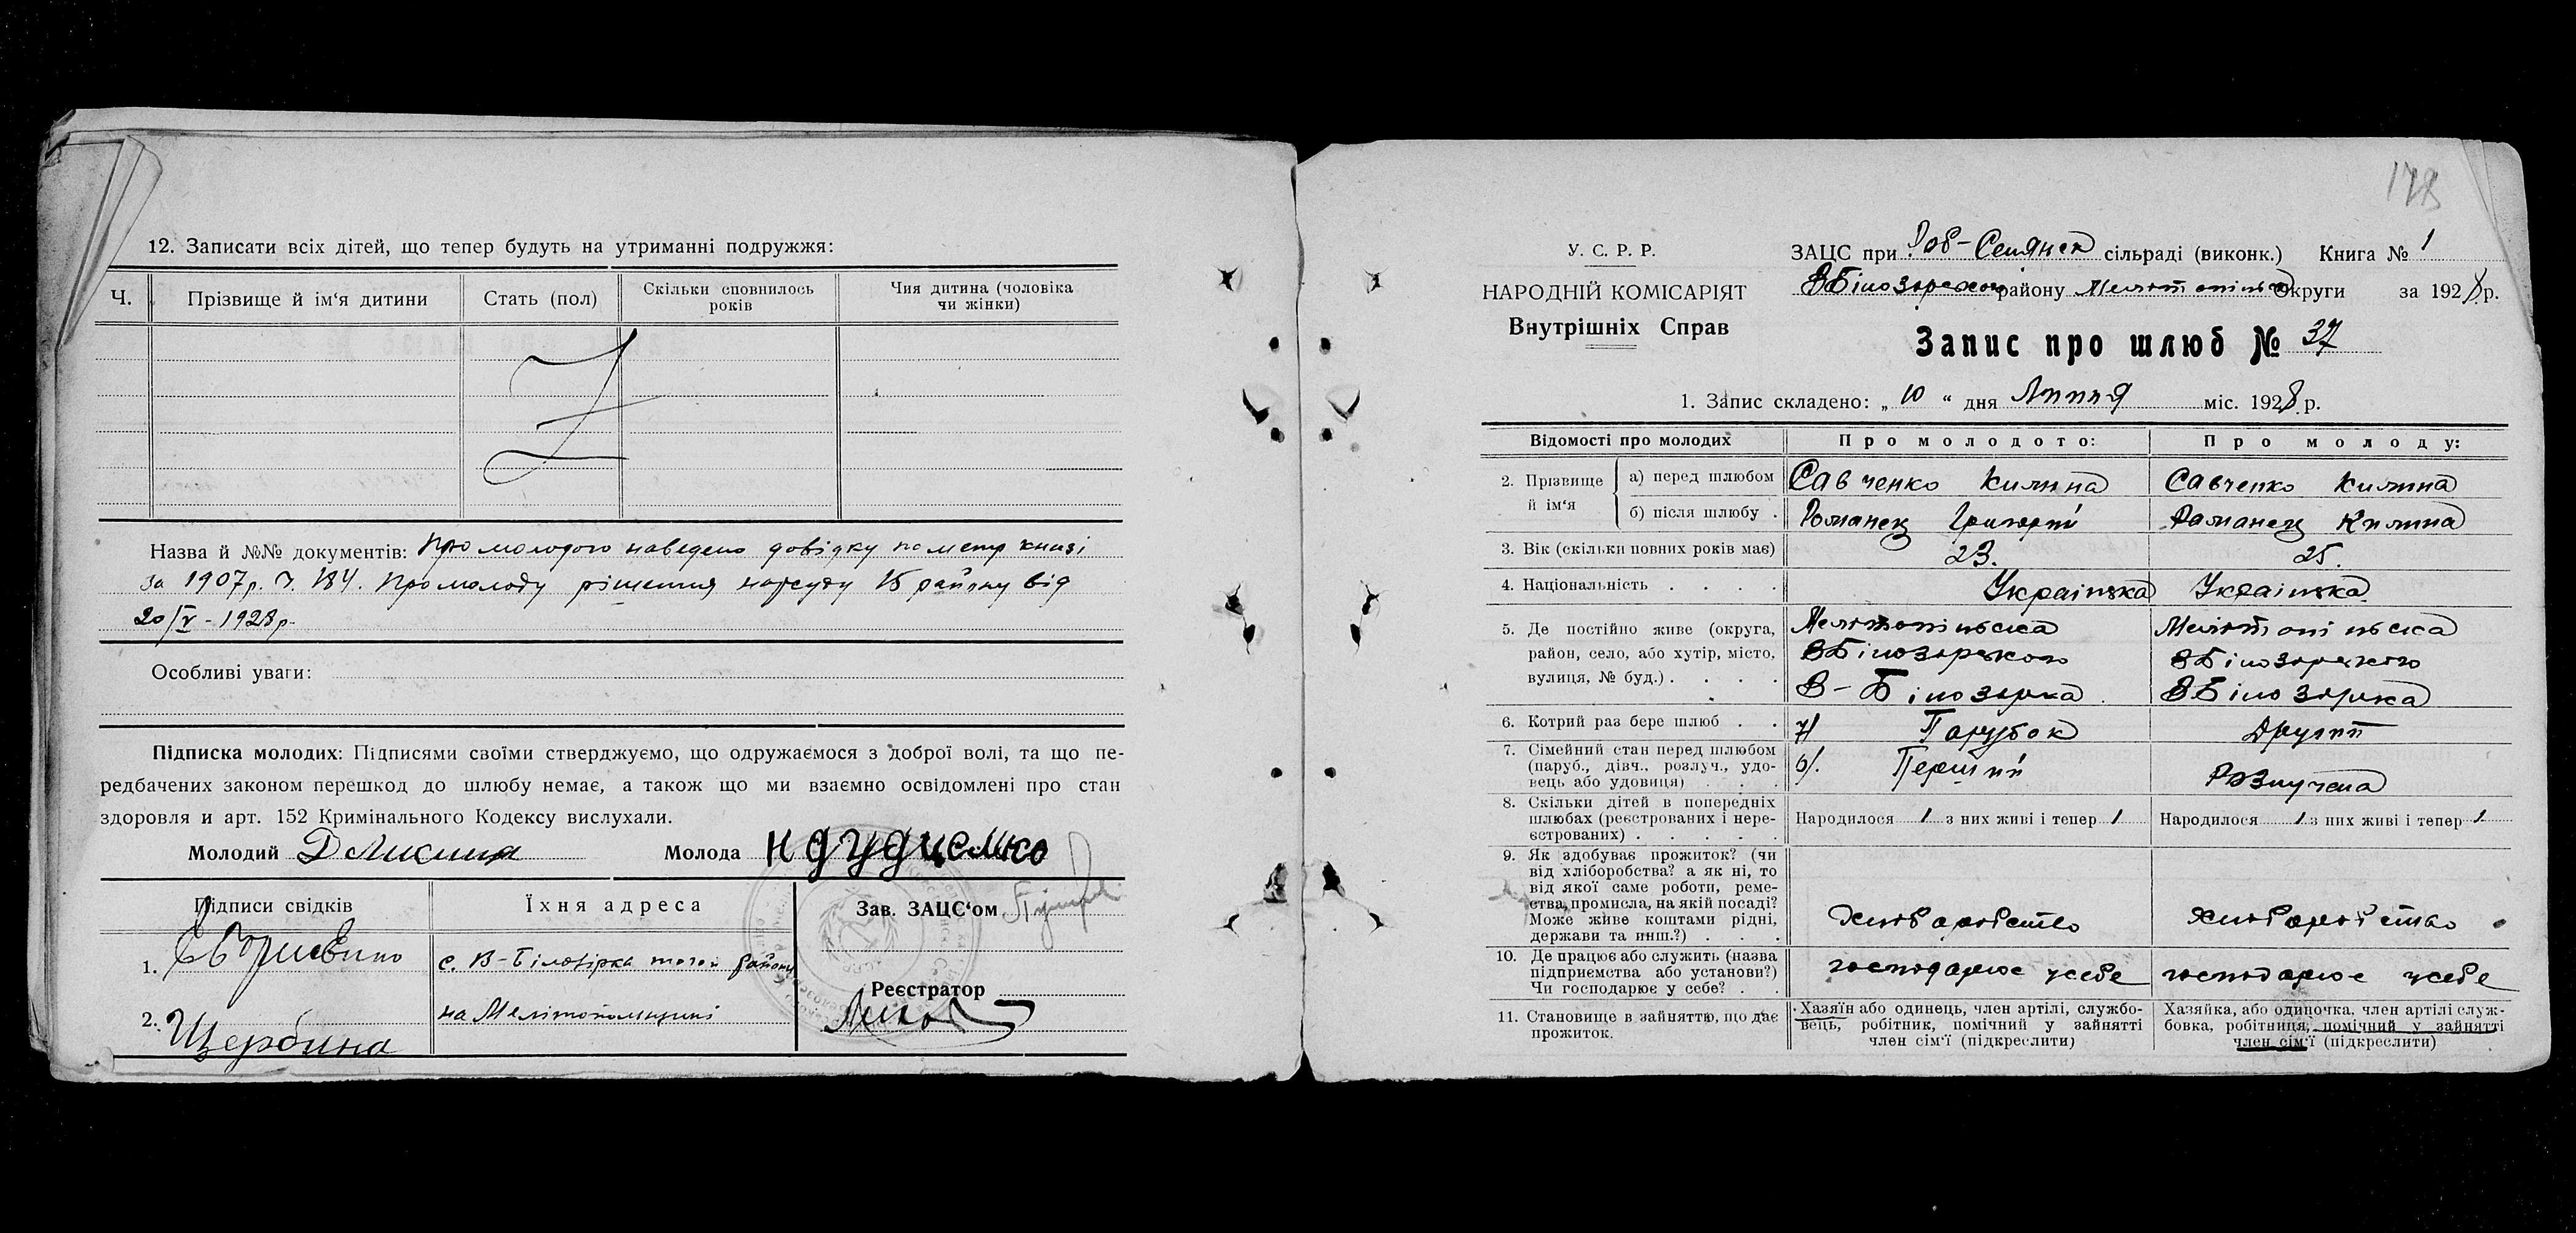 12. Записати всіх дітей, що тепер будуть на утриманні подружжя:
Ч. Прізвище й ім‘я дитини Стать (пол) Скільки сповнилось років Чия дитина (чоловіка чи жінки)
Назва й №№ документів: Про молодого наведено довідку по метр книзі
за 1907р. Ч. 184. Про молоду рішення нарсуду 1б району від
20/V - 1928р.
Особливі уваги:
Підписка молодих: Підписями своїми стверджуємо, що одружаємося з доброї волі, та що пе-
редбачених законом перешкод до шлюбу немає, а також що ми взаємно освідомлені про стан
здоровля и арт. 152 Кримінального Кодексу вислухали.
Молодий Молода
Підписи свідків Їхня адреса Зав. ЗАЦС‘ом
1. с. В-Білозірка того й району
Реєстратор
2. Щербина на Мелітопольщині
178
У. С. Р. Р.
НАРОДНІЙ КОМІСАРІЯТ
Внутрішніх Справ
ЗАЦС при Роб-Селянск сільраді (виконк.) Книга № 1
ВБілозорского району Мелітопільск округи за 1928 р.
Запис про шлюб № 37
1. Запис складено: „ 10 “ дня Липня міс. 1928 р.
Відомості про молодих Про молодого: Про молоду:
2. Прізвище й ім‘я а) перед шлюбом Савченко Килина Савченко Килина
б) після шлюбу . Романец Григорій Романец Килина
3. Вік (скільки повних років має) 23. 25.
4. Національність . . . . Українська Українська
5. Де постійно живе (округа, Мелітопільска Мелітопільска
район, село, або хутір, місто, ВБілозорского ВБілозорского
вулиця, № буд.) . . . . В-Білозорка ВБілозорка
6. Котрий раз бере шлюб . . 7/ Парубок Другий
7. Сімейний стан перед шлюбом (паруб., дівч., розлуч., удо-
вець або удовиця) . . . 6/. Перший Розлучена
8. Скільки дітей в попередніх
шлюбах (реєстрованих і нере-
єстрованих) . . . . . Народилося 1 з них живі і тепер 1 Народилося 1 з них живі і тепер 1
9. Як здобуває прожиток? (чи
від хліборобства? а як ні, то
від якої саме роботи, реме-
ства, промисла, на якій посаді?
Може живе коштами рідні,
держави та инш.?) . . . Хлібаробство Хлібаробство
10. Де працює або служить (назва
підприємства або установи?)
Чи господарює у себе? . . господарює усебе господарює усебе
11. Становище в зайняттю, що дає
прожиток.
Хазяїн або одинець, член артілі, службо-
вець, робітник, помічний у зайнятті
член сім‘ї (підкреслити)
Хазяйка, або одиночка, член артілі служ-
бовка, робітниця, помічний у зайнятті
член сім‘ї (підкреслити)